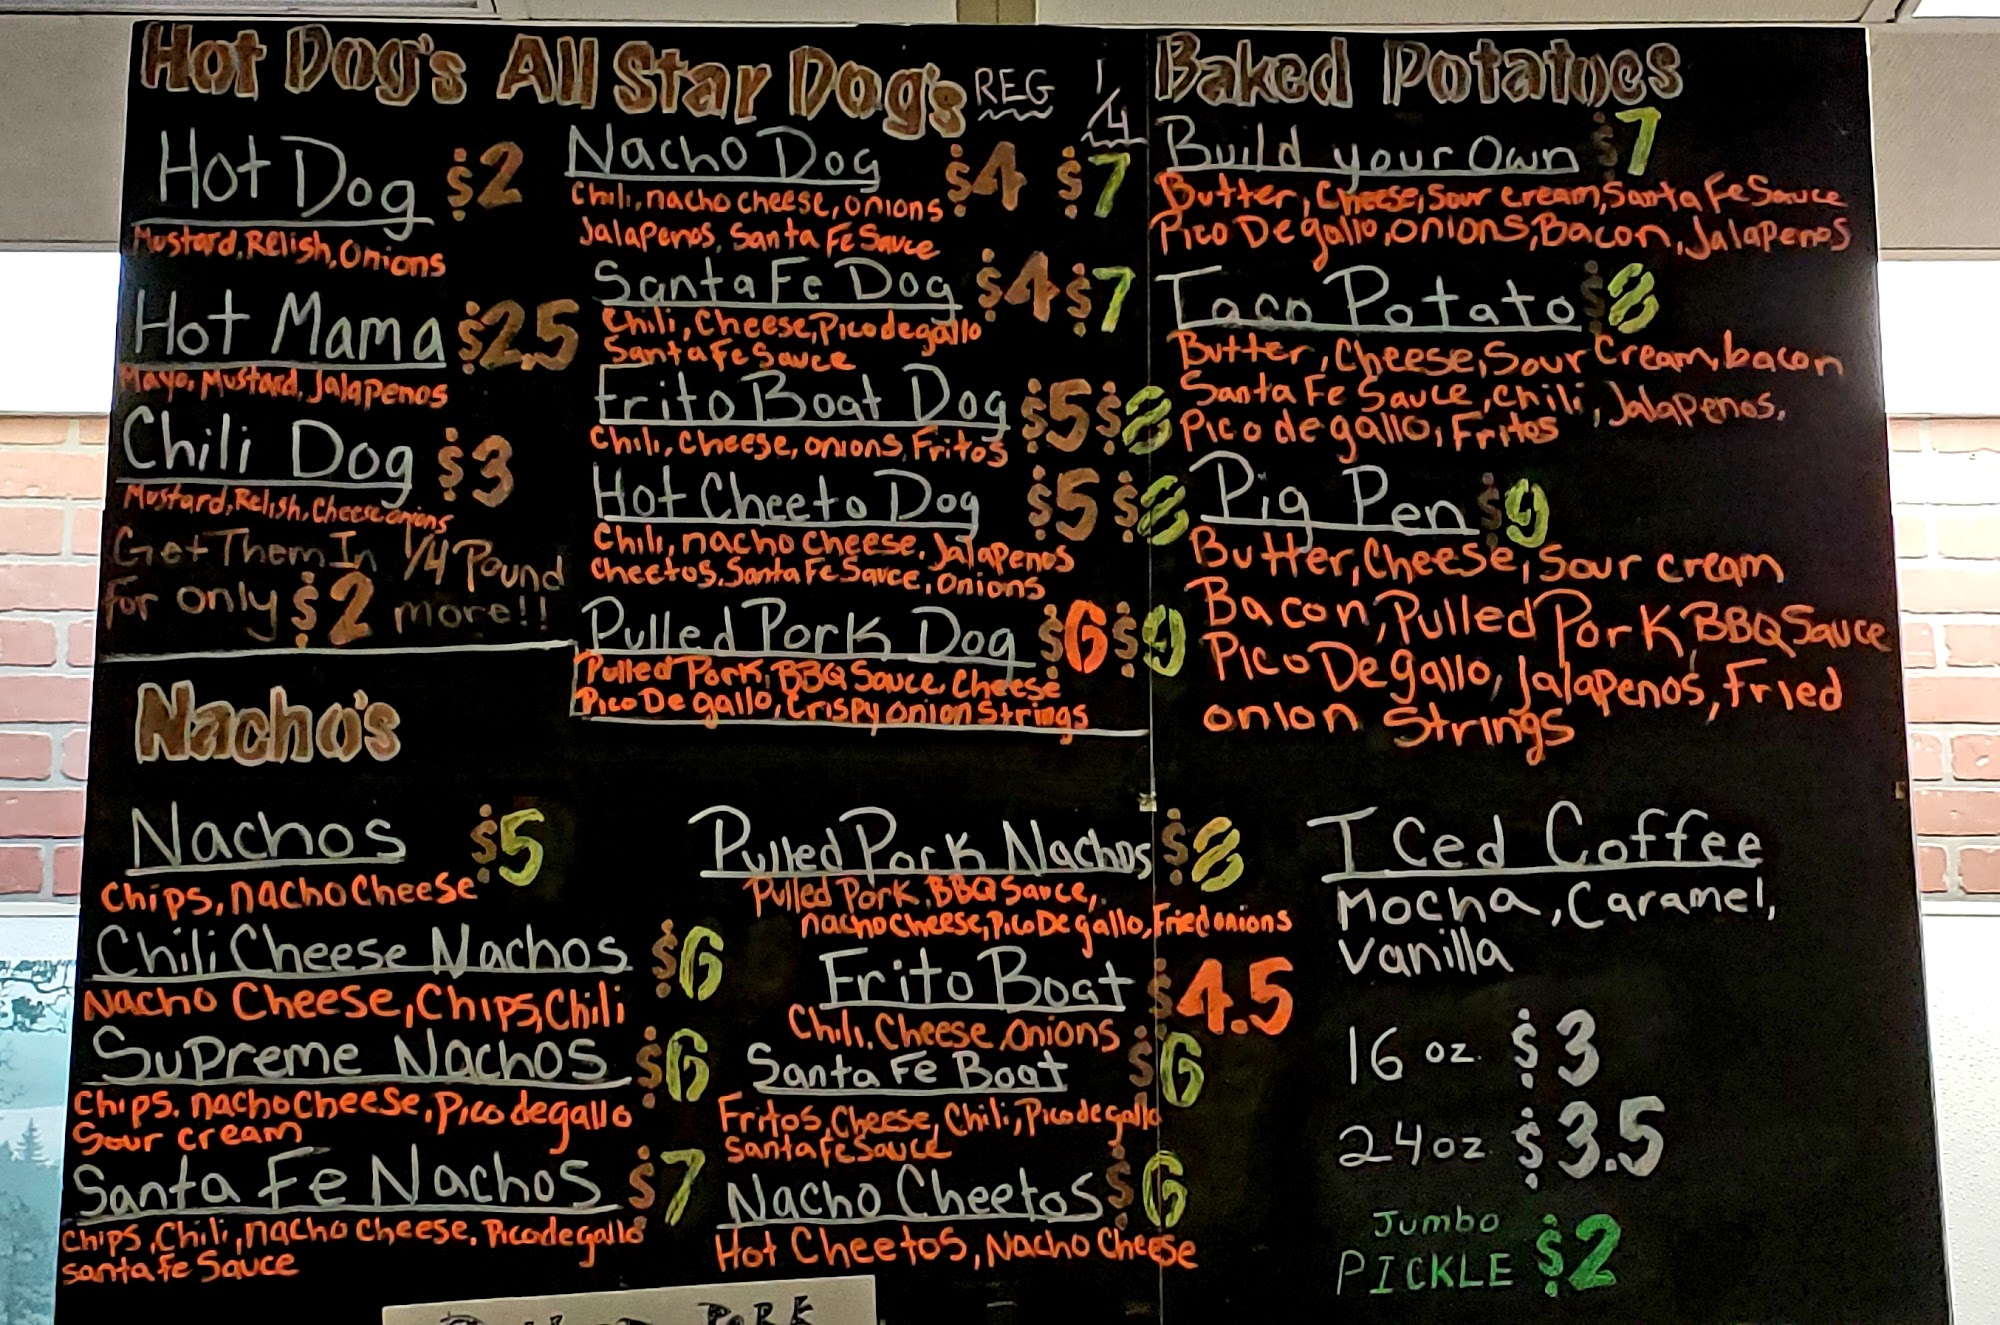 Hot Dog's
Hot Dog $2
Mustard, Relish, Onions
Hot Mama $2.5
Mayo, Mustard, Jalapenos
Chili Dog $3
Mustard, Relish, Cheese onions
Get Them In 1/4 Pound
For only $2 more!!
All Star Dog's REG 1/4
Nacho Dog $4 $7
Chili, nacho cheese, onions
Jalapenos, Santa Fe Sauce
Santa Fe Dog $4 $7
Chili, Cheese, Pico de gallo
Santa Fe Sauce
Frito Boat Dog $5 $8
Chili, Cheese, onions, Fritos
Hot Cheeto Dog $5 $8
Chili, nacho cheese, Jalapenos
Cheetos, Santa Fe Sauce, Onions
Pulled Pork Dog $6 $9
Pulled Pork, BBQ Sauce, Cheese
Pico De gallo, Crispy onion Strings
Baked Potatoes
Build your Own $7
Butter, Cheese, Sour cream, Santa Fe Sauce
Pico De gallo, onions, Bacon, Jalapenos
Taco Potato $8
Butter, Cheese, Sour Cream, bacon
Santa Fe Sauce, chili, Jalapenos,
Pico de gallo, Fritos
Pig Pen $9
Butter, Cheese, Sour cream
Bacon, Pulled Pork, BBQ Sauce
Pico De gallo, Jalapenos, Fried
onion Strings
Nacho's
Nachos $5
Chips, nacho Cheese
Chili Cheese Nachos $6
Nacho Cheese, Chips, Chili
Supreme Nachos $6
Chips, nacho cheese, Pico de gallo
Sour cream
Santa Fe Nachos $7
Chips, Chili, nacho cheese, Pico de gallo
santa fe Sauce
Pulled Pork Nachos $8
Pulled Pork, BBQ Sauce,
nacho cheese, Pico De gallo, Fried onions
Frito Boat $4.5
Chili, Cheese, onions
Santa Fe Boat $6
Fritos, Cheese, Chili, Pico de gallo
Santa Fe Sauce
Nacho Cheetos $6
Hot Cheetos, Nacho Cheese
Iced Coffee
Mocha, Caramel,
Vanilla
16 oz. $3
24 oz $3.5
Jumbo
PICKLE $2
PORK